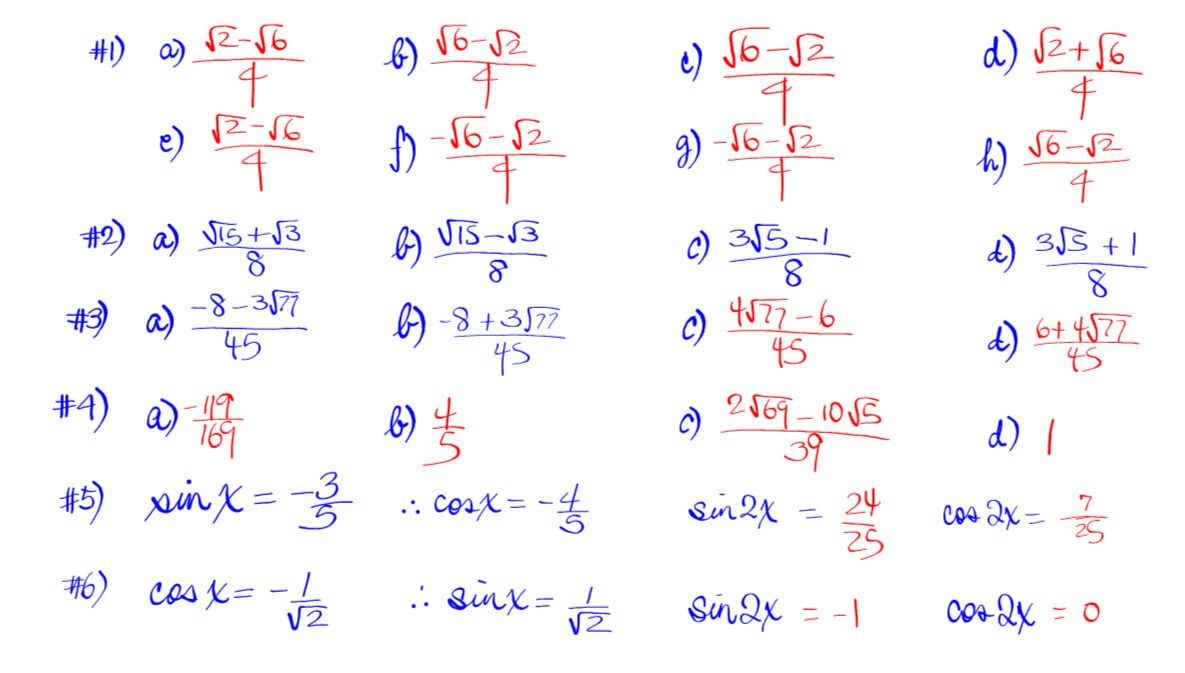 #1) a) √2-√6/4 b) √6-√2/4 c) √6-√2/4 d) √2+√6/4
e) √2-√6/4 f) -√6-√2/4 g) -√6-√2/4 h) √6-√2/4
#2) a) √15+√3/8 b) √15-√3/8 c) 3√5-1/8 d) 3√5+1/8
#3) a) -8-3√77/45 b) -8+3√77/45 c) 4√77-6/45 d) 6+4√77/45
#4) a) -119/169 b) 4/5 c) 2√69-10√5/39 d) 1
#5) sin x = -3/5 ∴ cos x = -4/5 sin 2x = 24/25 cos 2x = 7/25
#6) cos x = -1/√2 ∴ sin x = 1/√2 sin 2x = -1 cos 2x = 0